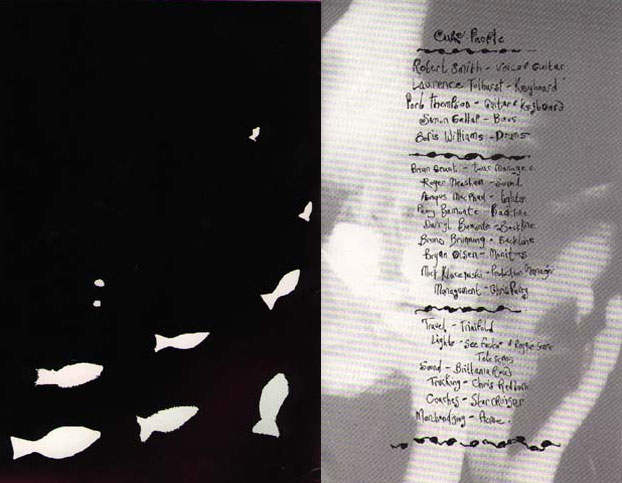 Cure People
Robert Smith - Voice & Guitar
Lawrence Tolhurst - Keyboard
Porl Thompson - Guitar & Keyboard
Simon Gallup - Bass
Boris Williams - Drums
Brian Grant - Tour Manager
Roger - Sound
Angus MacPhail - Lights
Perry Bamonte - Backline
Darryl Bamonte - Backline
Bruno Brunning - Backline
Bryan Olsen - Monitors
Mick - Production Manager
Management - Chris Parry
Travel - Trinifold
Lights - See Factor &
Telescan
Sound - Brittania Row
Trucking - Chris Redburn
Coaches - Starcruiser
Merchandising - Acme.